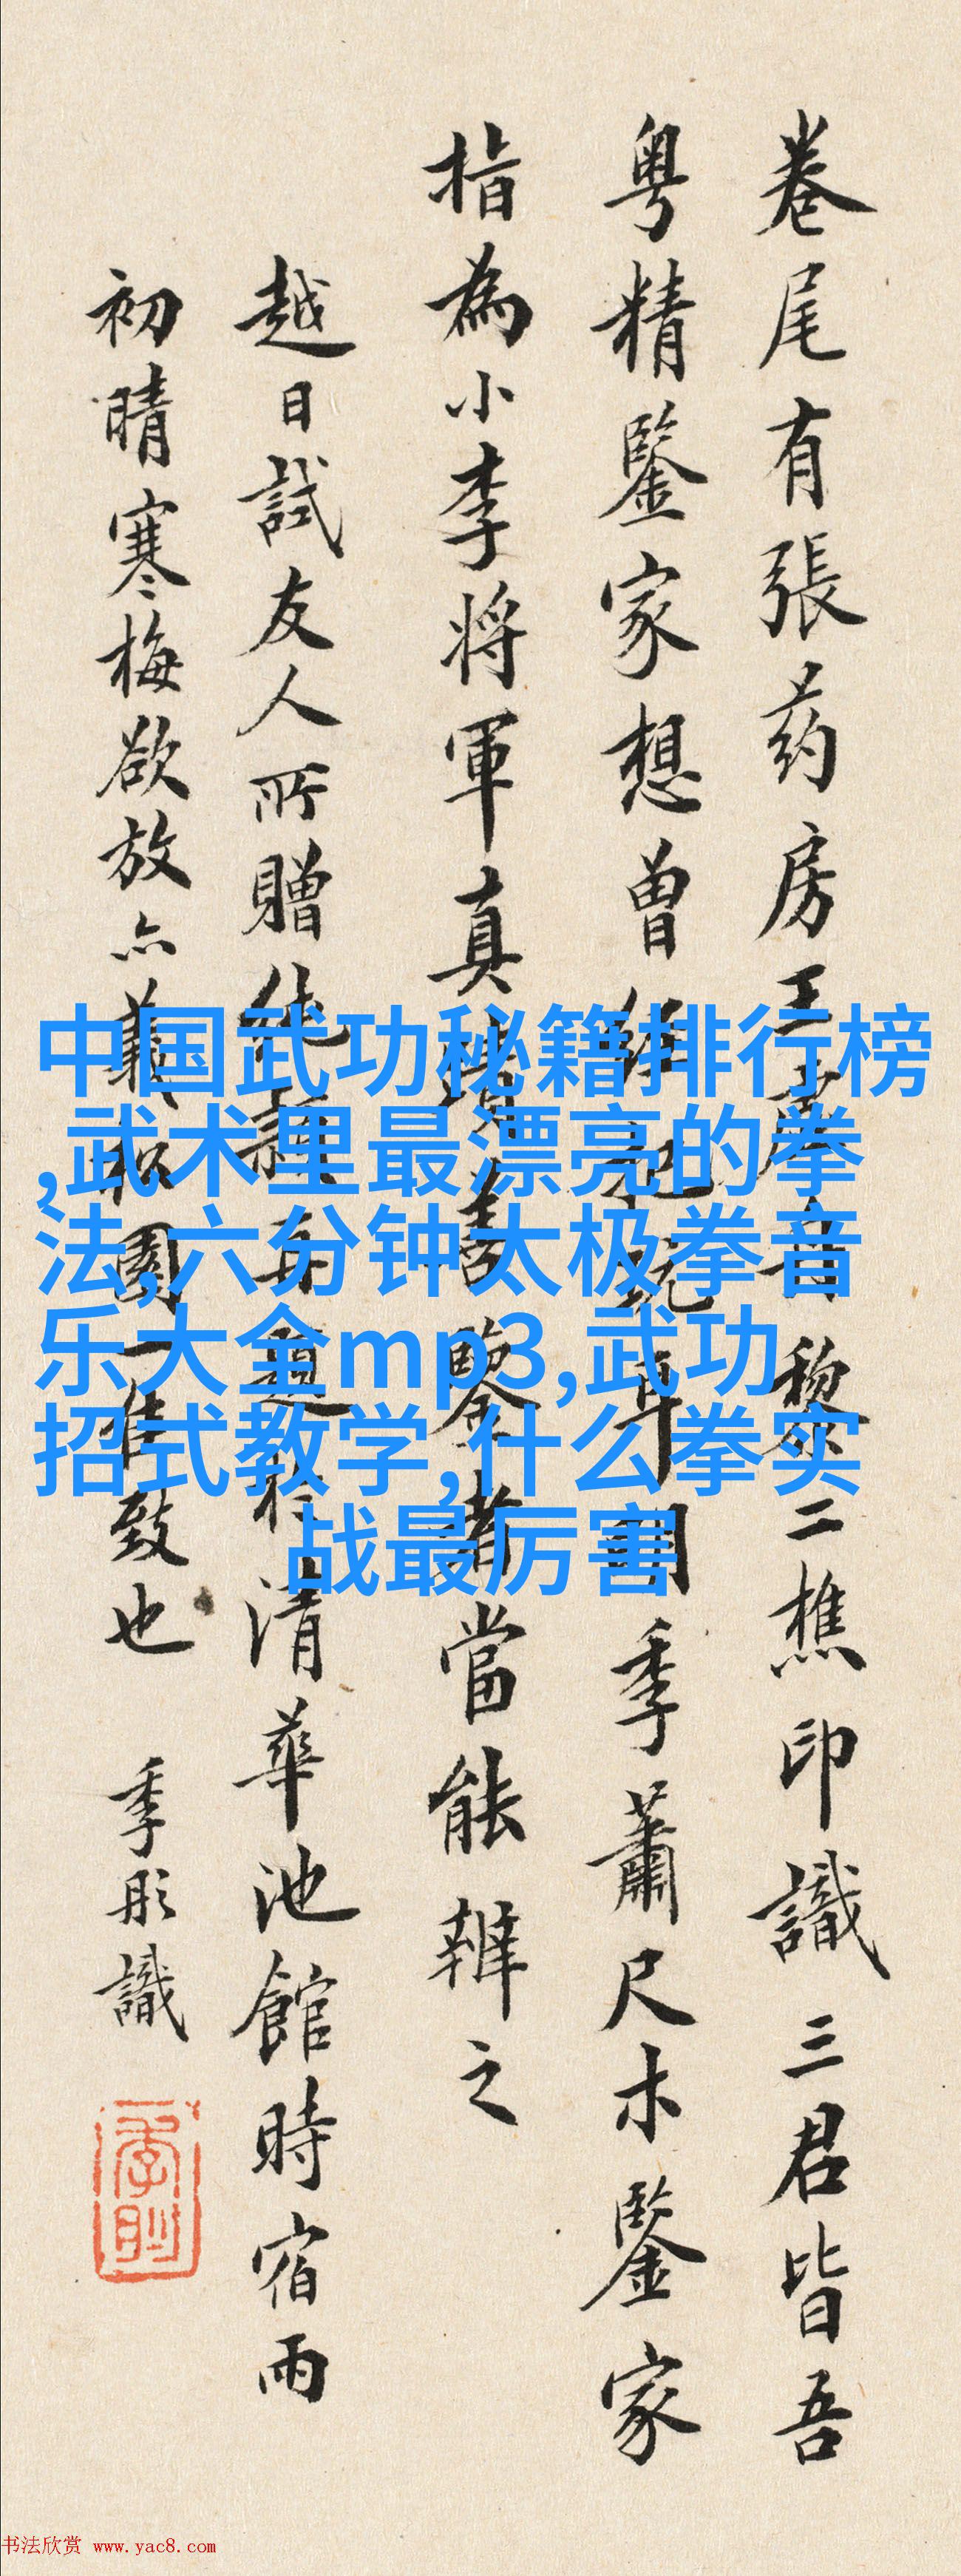 卷尾有張药房王
音二樵印識三君皆吾
粤精鑒家想曾
年明季蕭尺木鑒家
指為小李將軍真
鑒者當能辨之
越日試友人所贈
清華池館時宿雨
初晴寒梅欲放亦
園一佳致也 季彤識
中国武功秘籍排行榜
,武术里最漂亮的拳
法,六分钟太极拳音
乐大全mp3,武功
招式教学,什么拳实
战最厉害
书法欣赏 www.yac8.com